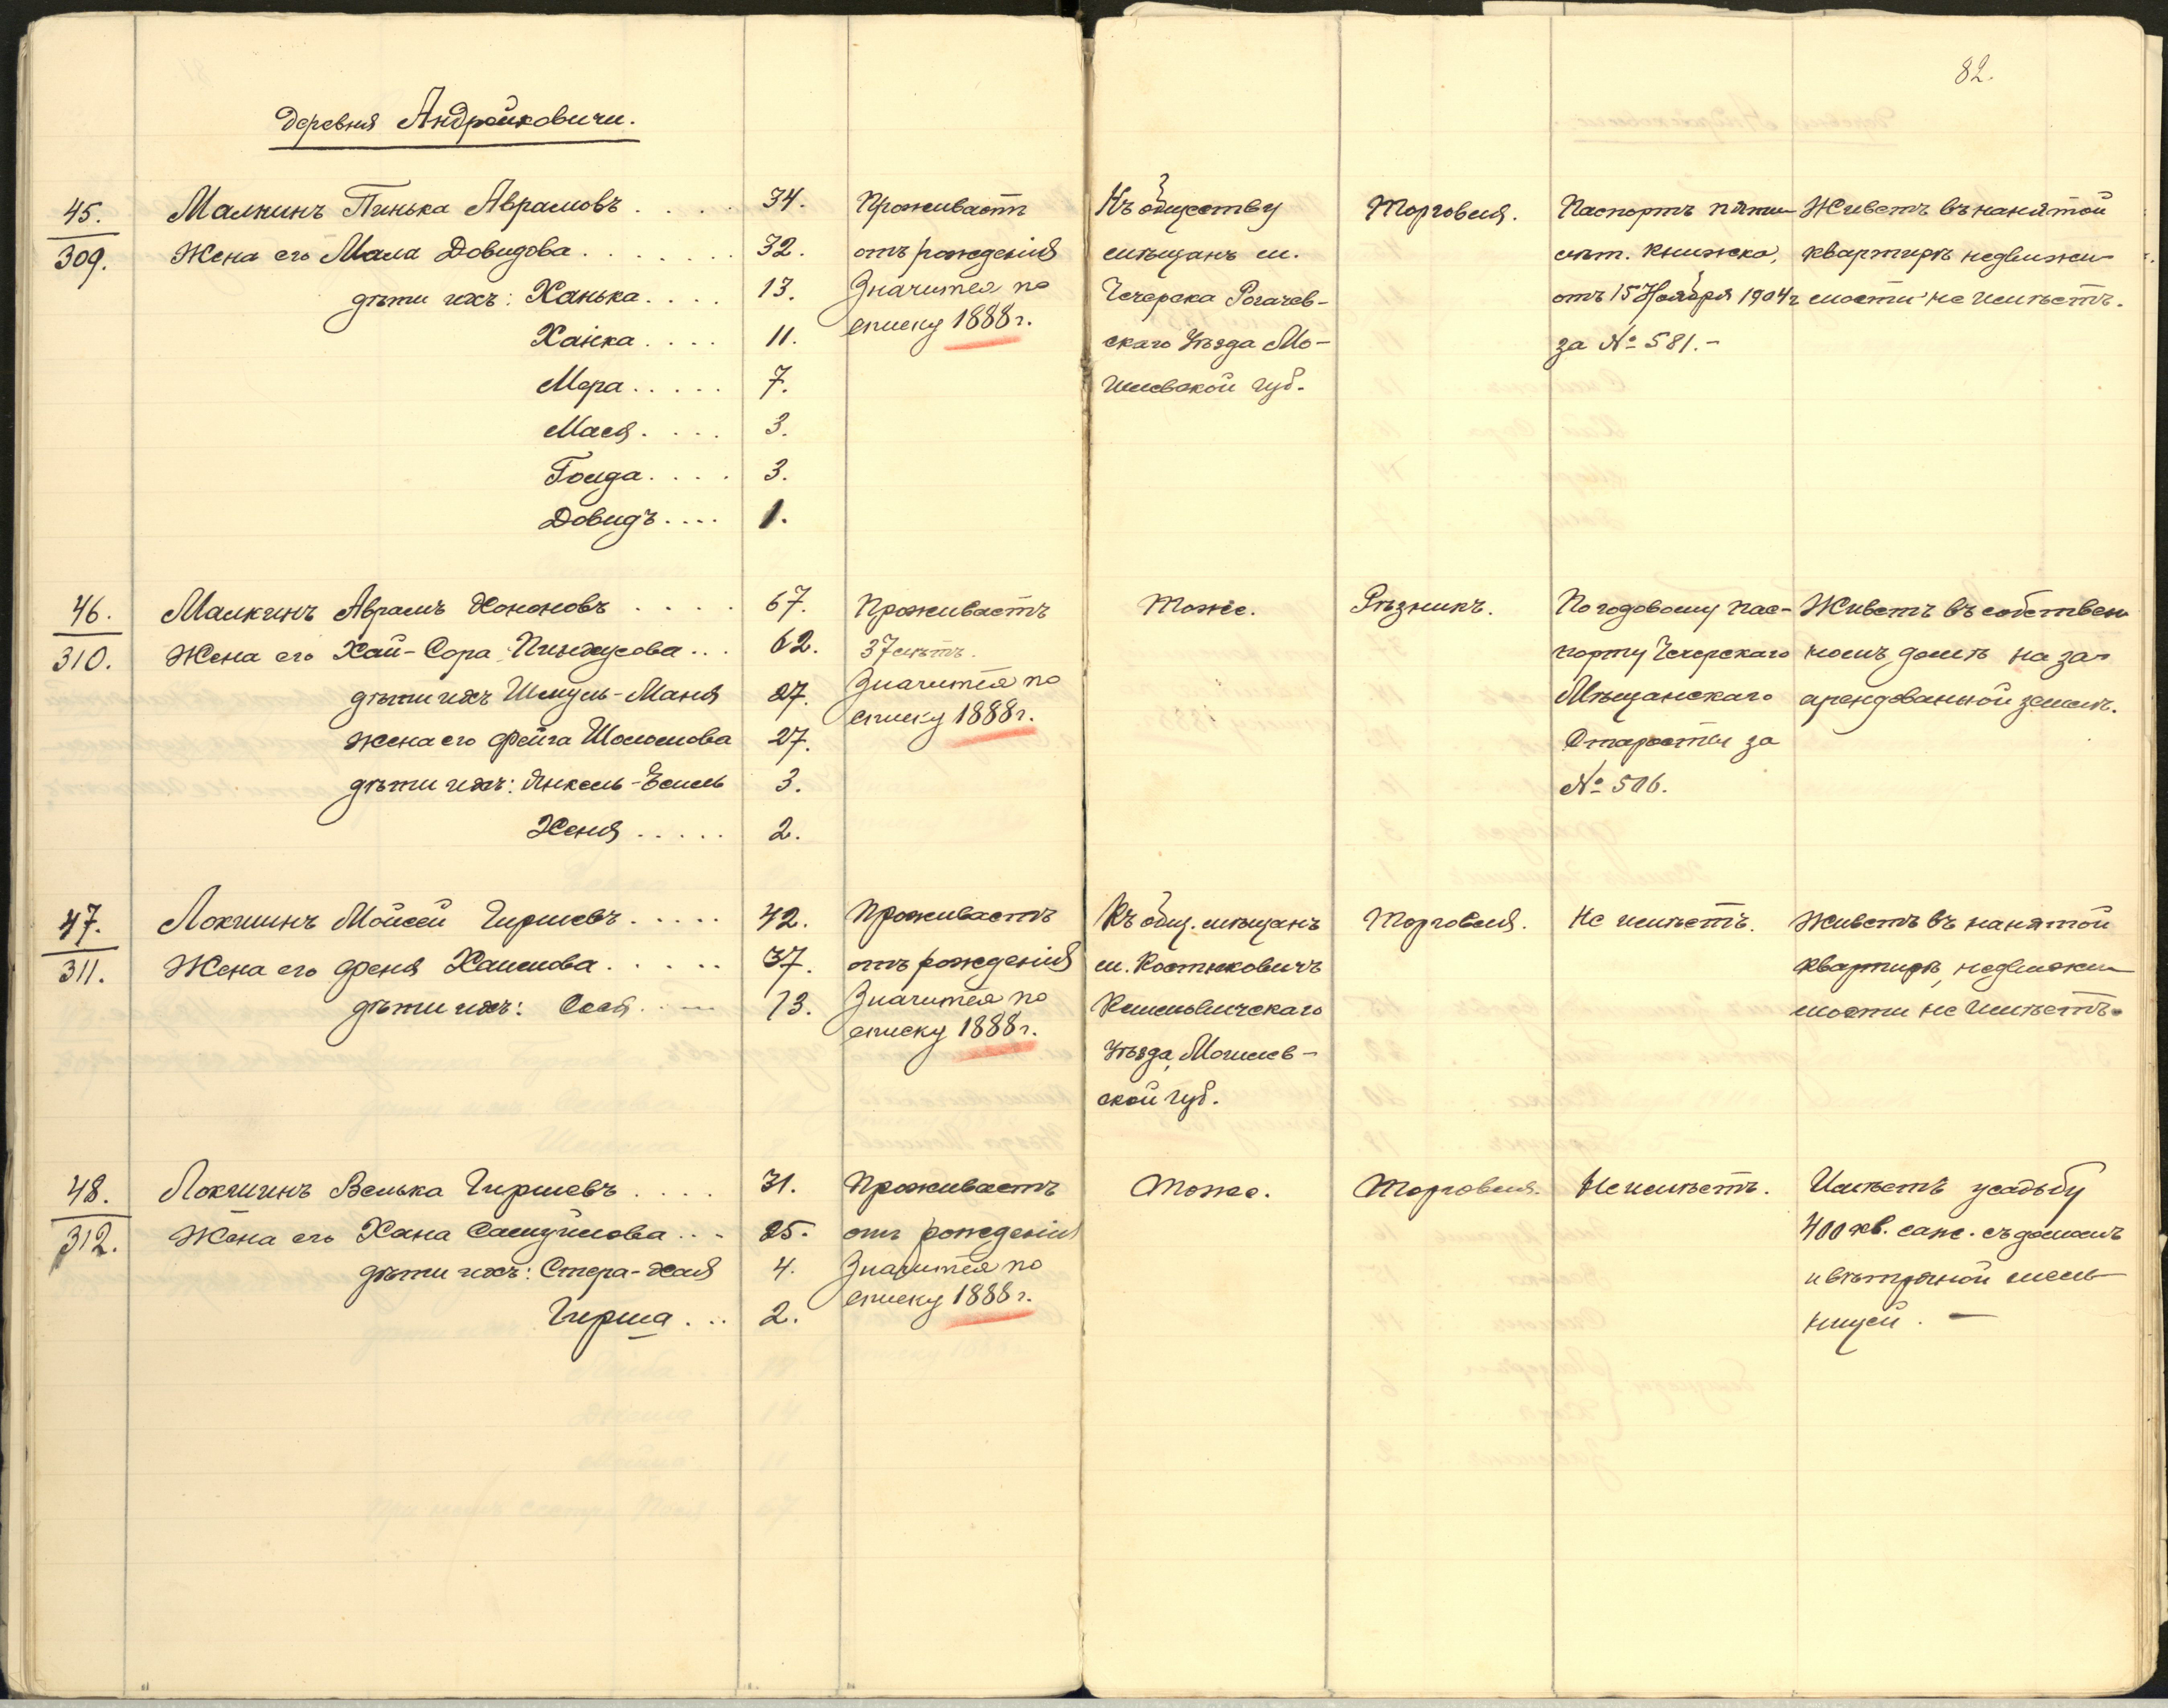 82.
деревня Андрейковичи.
45.
309.
Малкинъ Пинька Аврамовъ . . . . 34.
Жена его Мала Довидова . . . . . . . 32.
дѣти ихъ: Ханька . . . . 13.
Хайка . . . . 11.
Мера . . . . . 7.
Мася . . . . 3.
Голда . . . . 3.
Довидъ . . . . 1.
Проживаетъ
отъ рожденія
Значится по
списку 1888 г.
Къ обществу
мѣщанъ м.
Чечерска Рогачев-
скаго Уѣзда Мо-
гилевской губ.
Торговля.
Паспортъ пяти-
лѣт. книжка,
отъ 15 Ноября 1904 г
за № 581. -
Живетъ въ нанятой
квартирѣ недвижи-
мости не имѣетъ.
46.
310.
Малкинъ Аврамъ Хононовъ . . . . 67.
Жена его Хай-Сора Пинхусова . . . 62.
дѣти ихъ Шмуль-Маня 27.
Жена его Фейга Шоломова 27.
дѣти ихъ: Янкель- 3.
Хеня . . . . . 2.
Проживаетъ
37 лѣтъ.
Значится по
списку 1888 г.
Тоже.
Рѣзникъ.
По годовому пас-
порту Чечерскаго
Мѣщанскаго
Старосты за
№ 506.
Живетъ въ собствен
номъ домѣ на за-
арендованной землѣ.
47.
311.
Локшинъ Мойсей Гиршевъ . . . . . 42.
Жена его Феня Хаимова . . . . . 37.
дѣти ихъ: Сося . . . 13.
Проживаетъ
отъ рожденія
Значится по
списку 1888 г.
Къ общ. мѣщанъ
м. Костюковичъ
Климовичскаго
Уѣзда, Могилев-
ской губ.
Торговля.
Не имѣетъ.
Живетъ въ нанятой
квартирѣ, недвижи-
мости не имѣетъ.
48.
312.
Локшинъ Велька Гиршевъ . . . . 31.
Жена его Хана Самуйлова . . . 25.
дѣти ихъ: Стера-Хая 4.
Гирша . . . 2.
Проживаетъ
отъ рожденія
Значится по
списку 1888 г.
Тоже.
Торговля.
Не имѣетъ.
Имѣетъ усадьбу
400 кв. саж. съ домомъ
и вѣтряной мель-
ницей. —